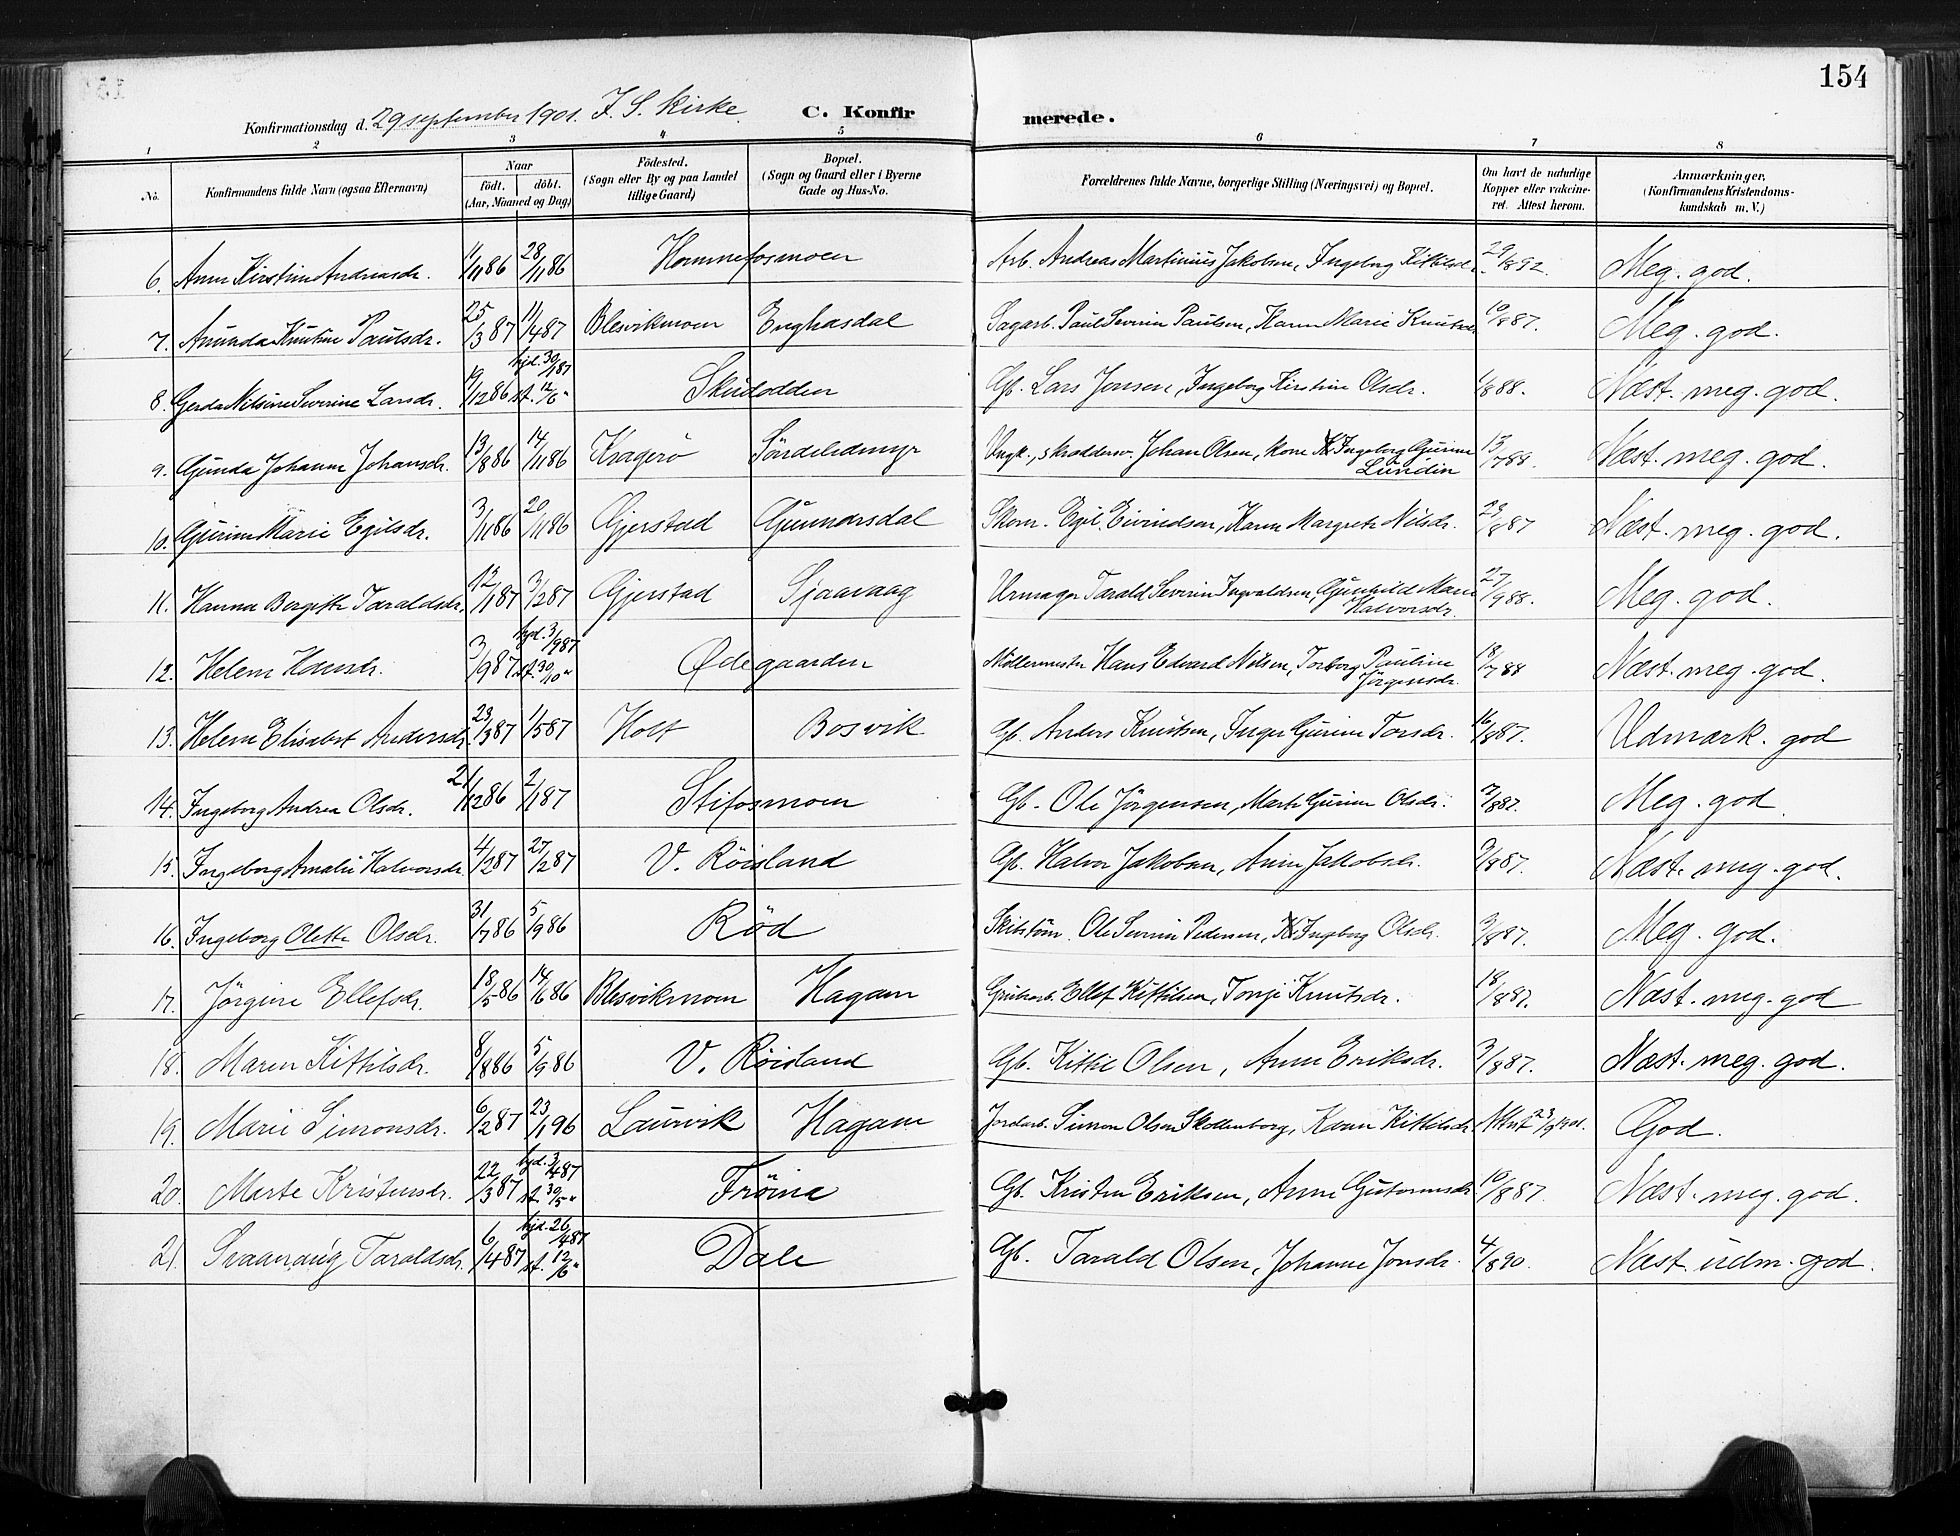 154
Konfirmationsdag d. 29 september 1901. F. S. Kirke. C. Konfirmerede.
1 2 3 4 5 6 7 8
No. Konfirmandens fulde Navn (ogsaa Efternavn) Naar födt. döbt. (Aar, Maaned og Dag) Födested. (Sogn eller By og paa Landet tillige Gaard) Bopæl. (Sogn og Gaard eller i Byerne Gade og Hus-No. Forældrenes fulde Navne, borgerlige Stilling (Næringsvei) og Bopæl. Om havt de naturlige Kopper eller vakcineret. Attest herom. Anmærkninger, (Konfirmandens Kristendomskundskab m. V.)
6. Anne Kirstine Andreasdr. 1/11 86 28/11 86 Hommefosmoen Arb. Andreas Martinius Jakobsen, Ingeborg Kittilsdr. 29/8 92. Meg. god.
7. Amunda Knutine Paulsdr. 25/3 87 11/4 87 Blesvikmoen Enghasdal Sagarb. Paul Severin Paulsen, Karen Marie Knutsdr. 10/8 87. Meg. god.
8. Gerda Nilsine Severine Larsdr. 19/12 86 hjd. 30/1 87 st. 12/6 " Skudodden Gb. Lars Jensen, Ingeborg Kirstine Olsdr. 1/8 88. Næst. meg. god.
9. Gunda Johanne Johansdr. 13/8 86 14/11 86 Kragerö Söndeledmyr Ungk., skrædersv. Johan Olsen, kone Ingeborg Gurine Lundin 13/7 88. Næst. meg. god.
10. Gurine Marie Egilsdr. 3/11 86 20/11 86 Gjerstad Gunnarsdal Skom. Egil Eivindsen, Karen Margrete Nilsdr. 23/8 87 Næst. meg. god.
11. Hanna Bergitte Taraldsdr. 12/1 87 3/2 87 Gjerstad Sjaavaag Urmager Tarald Severin Ingvaldsen, Gunhild Marie Halvorsdr. 27/9 88. Meg. god.
12. Helene Hansdr. 3/9 87 hjd. 3/9 87 st. 30/10 " Ødegaarden Möllermester Hans Edvard Nilsen, Torborg Pauline Jörgensdr. 18/7 88 Næst. meg. god.
13. Helene Elisabet Andersdr. 23/3 87 1/5 87 Holt Bosvik Gb. Anders Knutsen, Inger Gurine Torsdr. 16/8 87. Udmærk. god
14. Ingeborg Andrea Olsdr. 21/12 86 2/1 87 Stifosmoen Gb. Ole Jörgensen, Marte Gurine Olsdr. Meg. god
15. Ingeborg Amalie Halvorsdr. 4/2 87 27/2 87 V. Röisland Gb. Halvor Jakobsen, Anne Jakobsdr. 9/8 87. Næst. meg. god.
16. Ingeborg Olette Olsdr. 31/7 86 5/9 86 Röd Skibstöm. Ole Severin Pedersen, Ingeborg Olsdr. 3/8 87. Meg. god.
17. Jörgine Ellefsdr. 18/5 86 14/6 86 Blesvikmoen Hagann Grubearb. Ellef Kittilsen, Tonje Knutsdr. 18/8 87. Næst. meg. god
18. Maren Kittilsdr. 8/8 86 5/9 86 V. Röisland Gb. Kittil Olsen, Anne Eriksdr. 3/8 87. Næst. meg. god.
19. Marie Simonsdr. 6/2 87 23/1 96 Laurvik Hagann Jordarb. Simon Olsen Skollenborg, Karen Kittilsdr. Attest 23/9 1901. God.
20. Marte Kristensdr. 22/3 87 hjd. 3/4 87 st. 30/5 " Fröine Gb. Kristen Eriksen, Anne Gutormsdr. 10/8 87. Næst. meg. god.
21. Svaanaug Taraldsdr. 6/4 87 hjd. 26/4 87 st. 12/6 " Dale Gb. Tarald Olsen, Johanne Jonsdr. 4/8 90. Næst. udm. god.